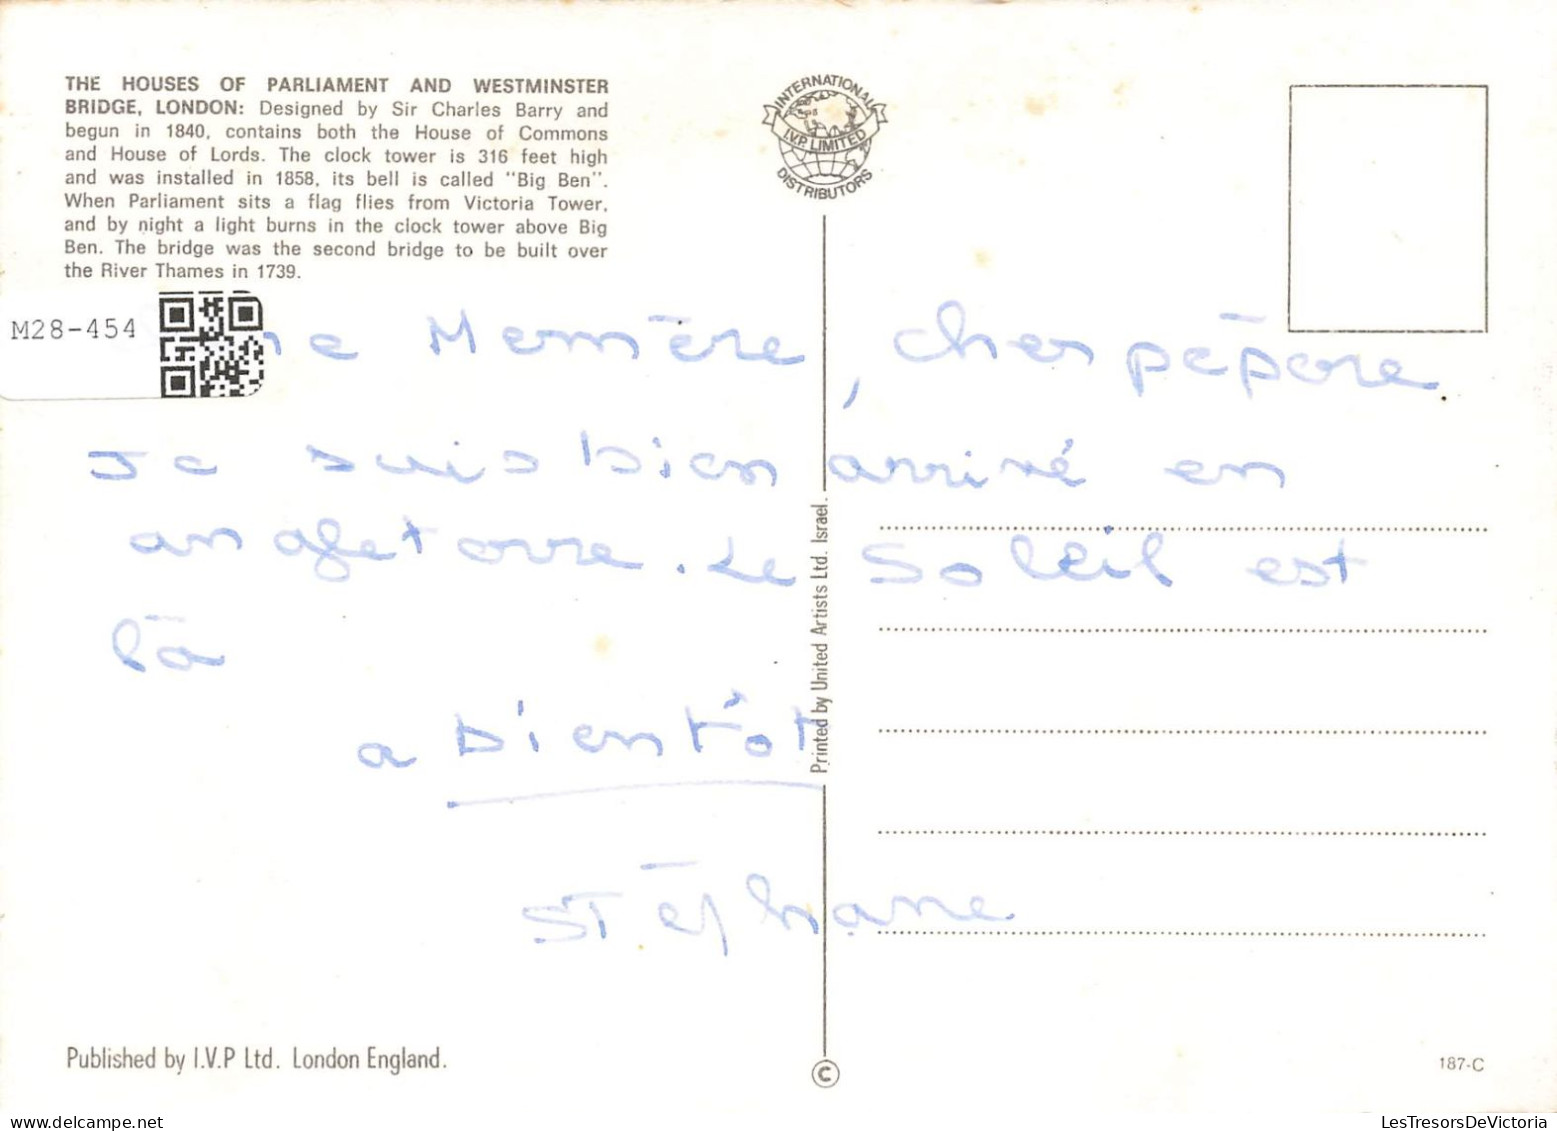 THE HOUSES OF PARLIAMENT AND WESTMINSTER
BRIDGE, LONDON: Designed by Sir Charles Barry and
begun in 1840, contains both the House of Commons
and House of Lords. The clock tower is 316 feet high
and was installed in 1858, its bell is called "Big Ben".
When Parliament sits a flag flies from Victoria Tower,
and by night a light burns in the clock tower above Big
Ben. The bridge was the second bridge to be built over
the River Thames in 1739.
INTERNATIONAL
I.V.P. LIMITED
DISTRIBUTORS
M28-454
Memère, cher pépère
Je suis bien arrivé en
angleterre. Le Soleil est
là
a bientôt
Stéphane
Printed by United Artists Ltd. Israel.
Published by I.V.P Ltd. London England.
©
187-C
LesTresorsDeVictoria